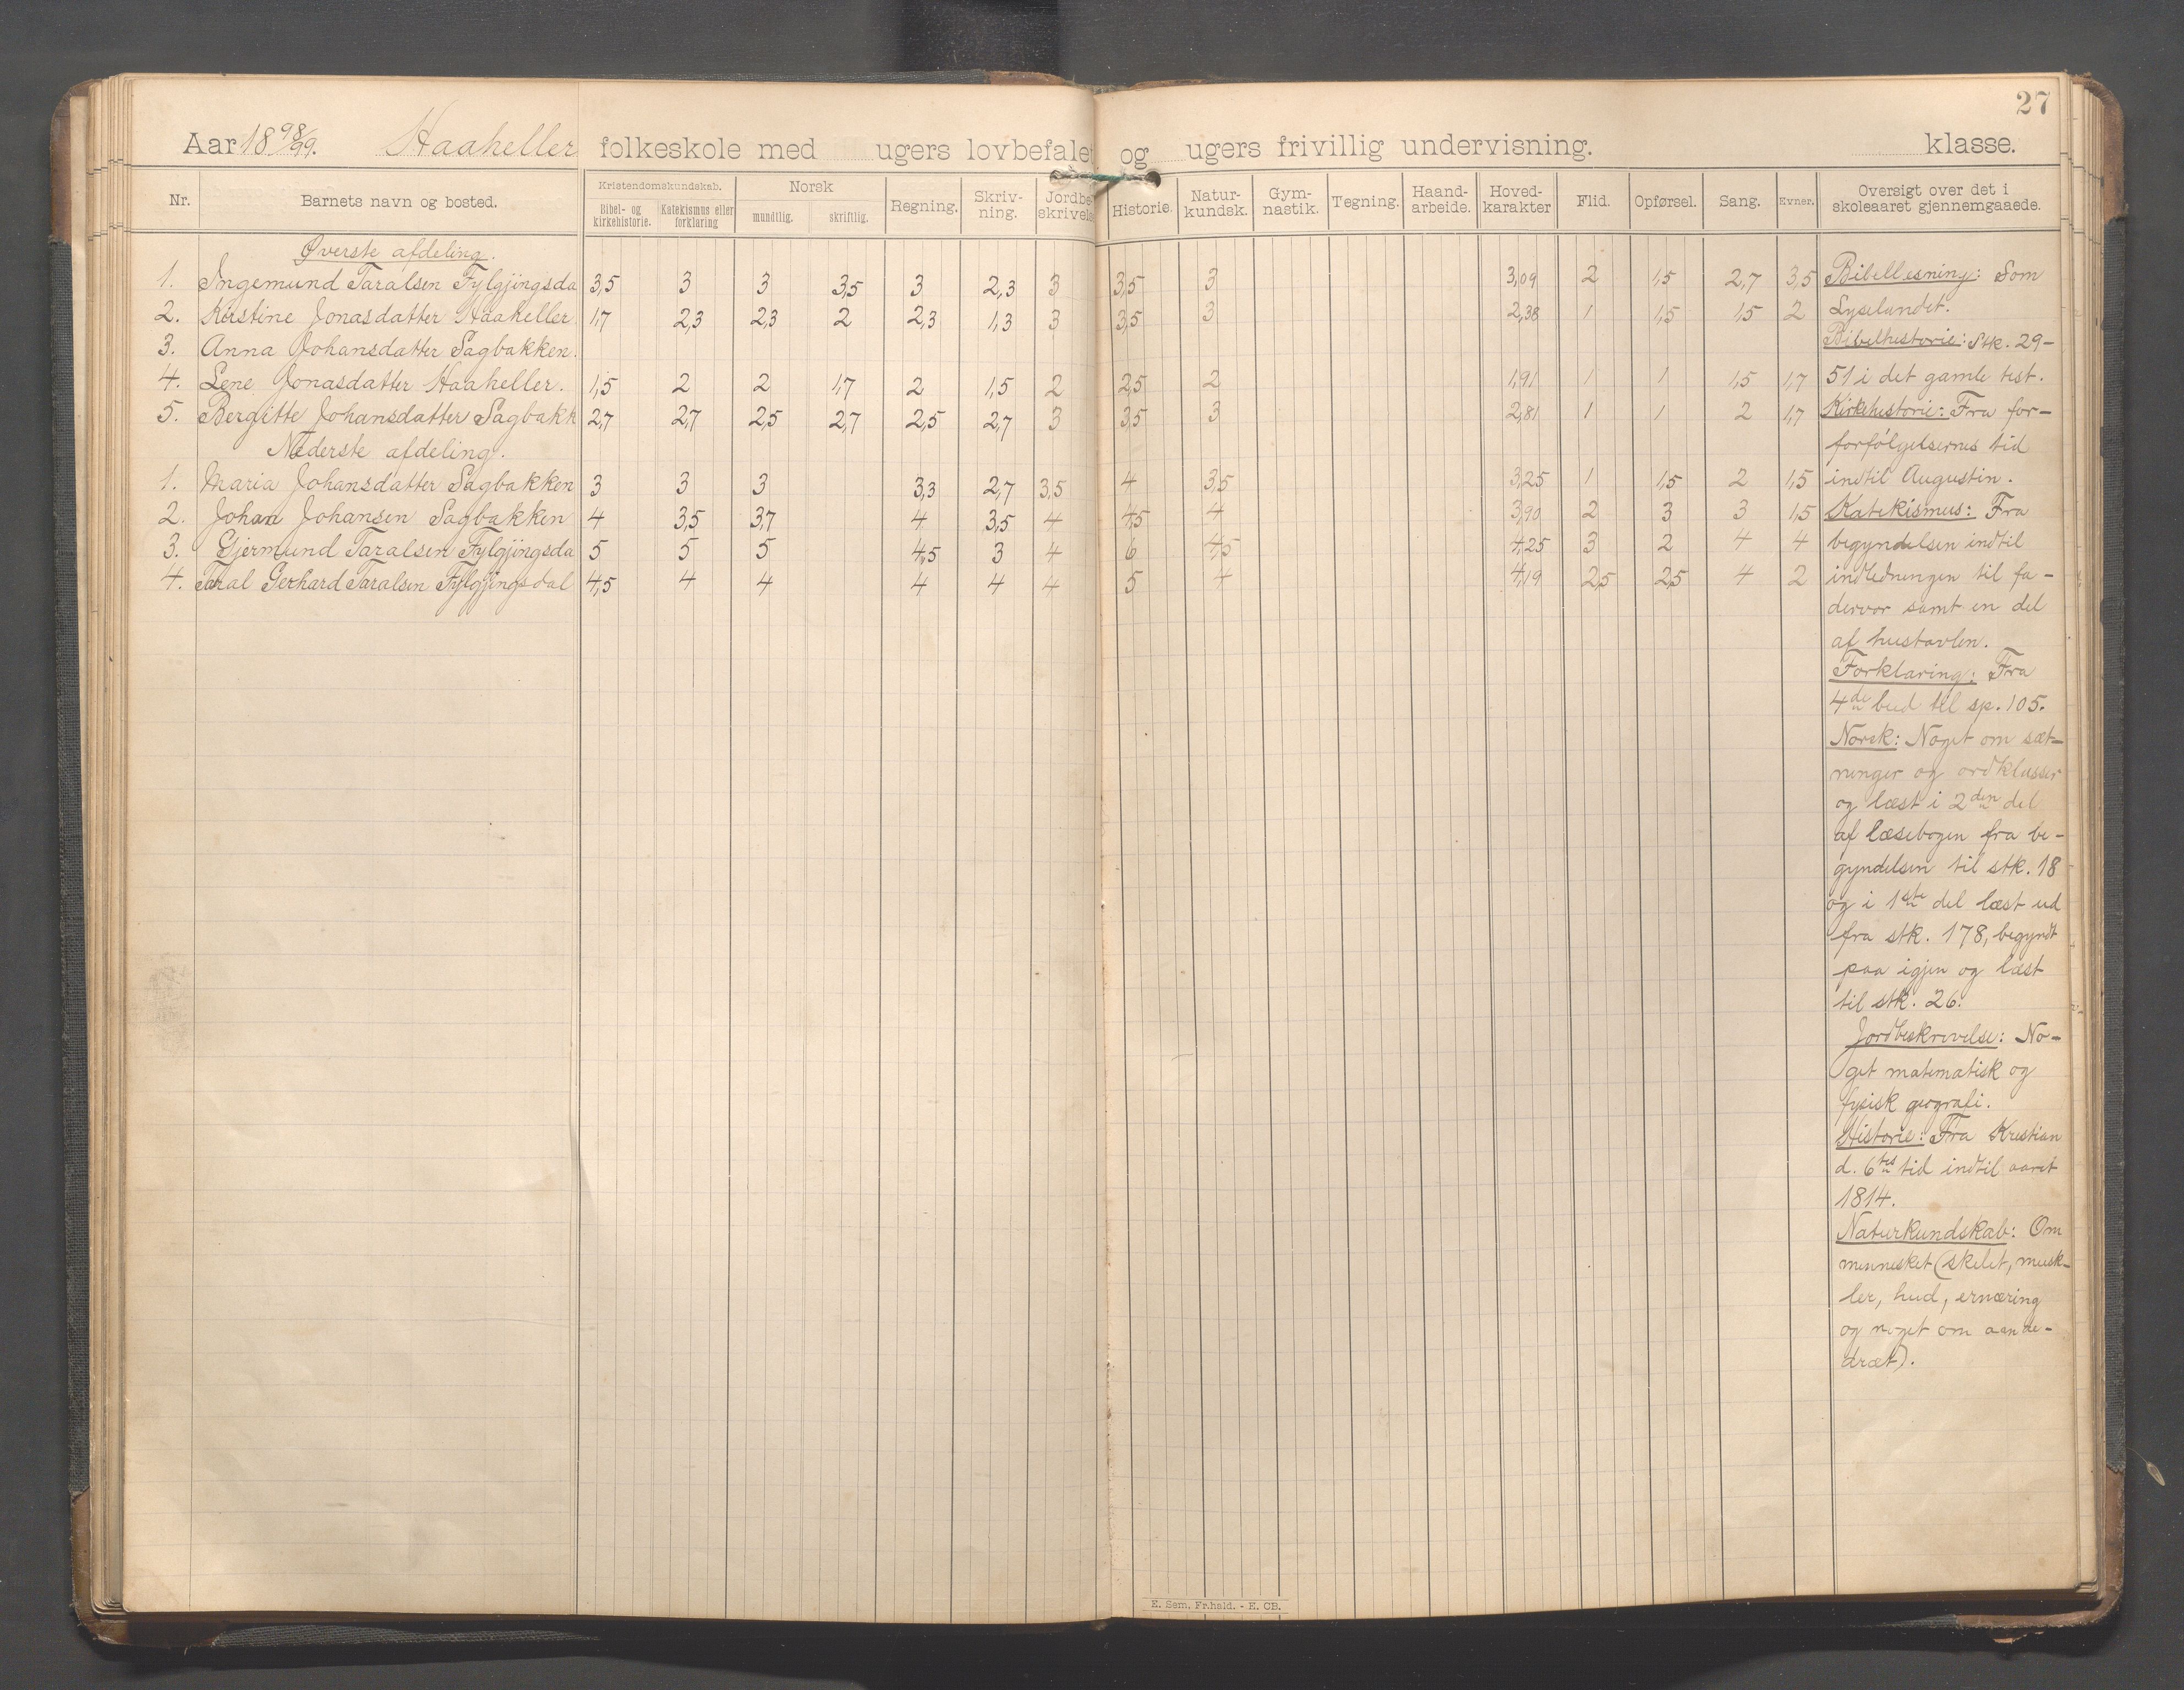 27
Aar 1898/99. Haaheller folkeskole med ugers lovbefalet og ugers frivillig undervisning. klasse.
Nr. Barnets navn og bosted. Kristendomskundskab. Bibel- og kirkehistorie. Katekismus eller forklaring Norsk mundtlig. skriftlig. Regning. Skriv-ning. Jordbe skrivels Historie. Natur-kundsk. Gym-nastik. Tegning. Haand-arbeide. Hoved-karakter Flid. Opførsel. Sang. Evner. Oversigt over det i skoleaaret gjennemgaaede.
Øverste afdeling.
1. Ingemund Taralsen Fylgjingsda 3,5 3 3 3,5 3 2,3 3 3,5 3 3,09 2 1,5 2,7 3,5
2. Kristine Jonasdatter Haaheller 1,7 2,3 2,3 2 2,3 1,3 3 3,5 3 2,38 1 1,5 1,5 2
3. Anna Johansdatter Sagbakken.
4. Lene Jonasdatter Haaheller. 1,5 2 2 1,7 2 1,5 2 2,5 2 1,91 1 1 1,5 1,7
5. Bergitte Johansdatter Sagbakk 2,7 2,7 2,5 2,7 2,5 2,7 3 3,5 3 2,81 1 1 2 1,7
Nederste afdeling.
1. Maria Johansdatter Sagbakken 3 3 3 3,3 2,7 3,5 4 3,5 3,25 1 1,5 2 1,5
2. Johan Johansen Sagbakken 4 3,5 3,7 4 3,5 4 4,5 4 3,90 2 3 3 1,5
3. Gjermund Taralsen Fylgjingsda 5 5 5 4,5 3 4 6 4,5 4,25 3 2 4 4
4. Taral Gerhard Taralsen Fylgjingsdal 4,5 4 4 4 4 4 5 4 4,19 2,5 2,5 4 2
Bibellesning: Som
Lyselandet.
Bibelhistorie: Stk. 29-
51 i det gamle test.
Kirkehistorie: Fra for-
forfølgelsernes tid
indtil Augustin.
Katekismus: Fra
begyndelsen indtil
indledningen til fa-
dervor samt en del
af hustavlen.
Forklaring: Fra
4de bud til sp. 105.
Norsk: Noget om sæt-
ninger og ordklasser
og læst i 2den del
af læsebogen fra be-
gyndelsen til stk. 18
og i 1ste del læst ud
fra stk. 178, begyndt
paa igjen og læst
til stk. 26.
Jordbeskrivelse: No-
get matematisk og
fysisk geografi.
Historie: Fra Kristian
d. 6tes tid indtil aaret
1814.
Naturkundskab: Om
mennesket (skelet, musk-
ler, hud, ernæring
og noget om aande-
dræt).
E. Sem, Fr.hald. - E. CB.